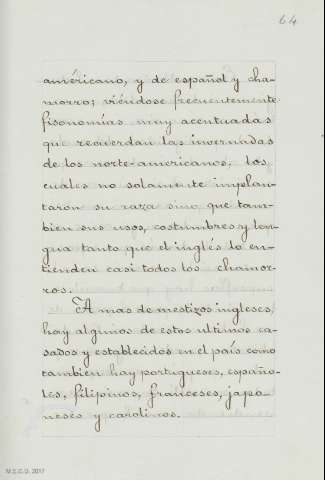 64
américano, y de español y cha-
morro; viéndose frecuentemente
fisonomías muy acentuadas
que recuerdan las invernadas
de los norte-americanos, los
cuales no solamente implan-
taron su raza sino que tam-
bien sus usos, costumbres y len-
gua tanto que el inglés lo en-
tienden casi todos los chamor-
ros.
A mas de mestizos ingleses,
hay algunos de estos ultimos ca-
sados y establecidos en el país como
tambien hay portugueses, españo-
les, filipinos, franceses, japo-
neses y carolinos.
M.E.C.D. 2017